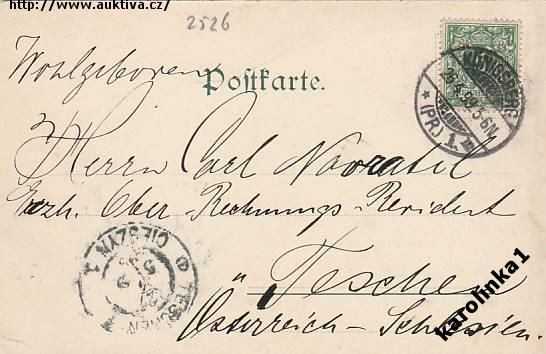 http://www.auktiva.cz/
2526
Wohlgeboren
Postkarte.
KÖNIGSBERG
26.4.99.5-6N.
* (PR.) 1.
Herrn Carl Navratil
Erzh. Ober Rechnungs-Revident
CIESZYN
TESCHEN
Teschen
Österreich-Schlesien.
karolinka1